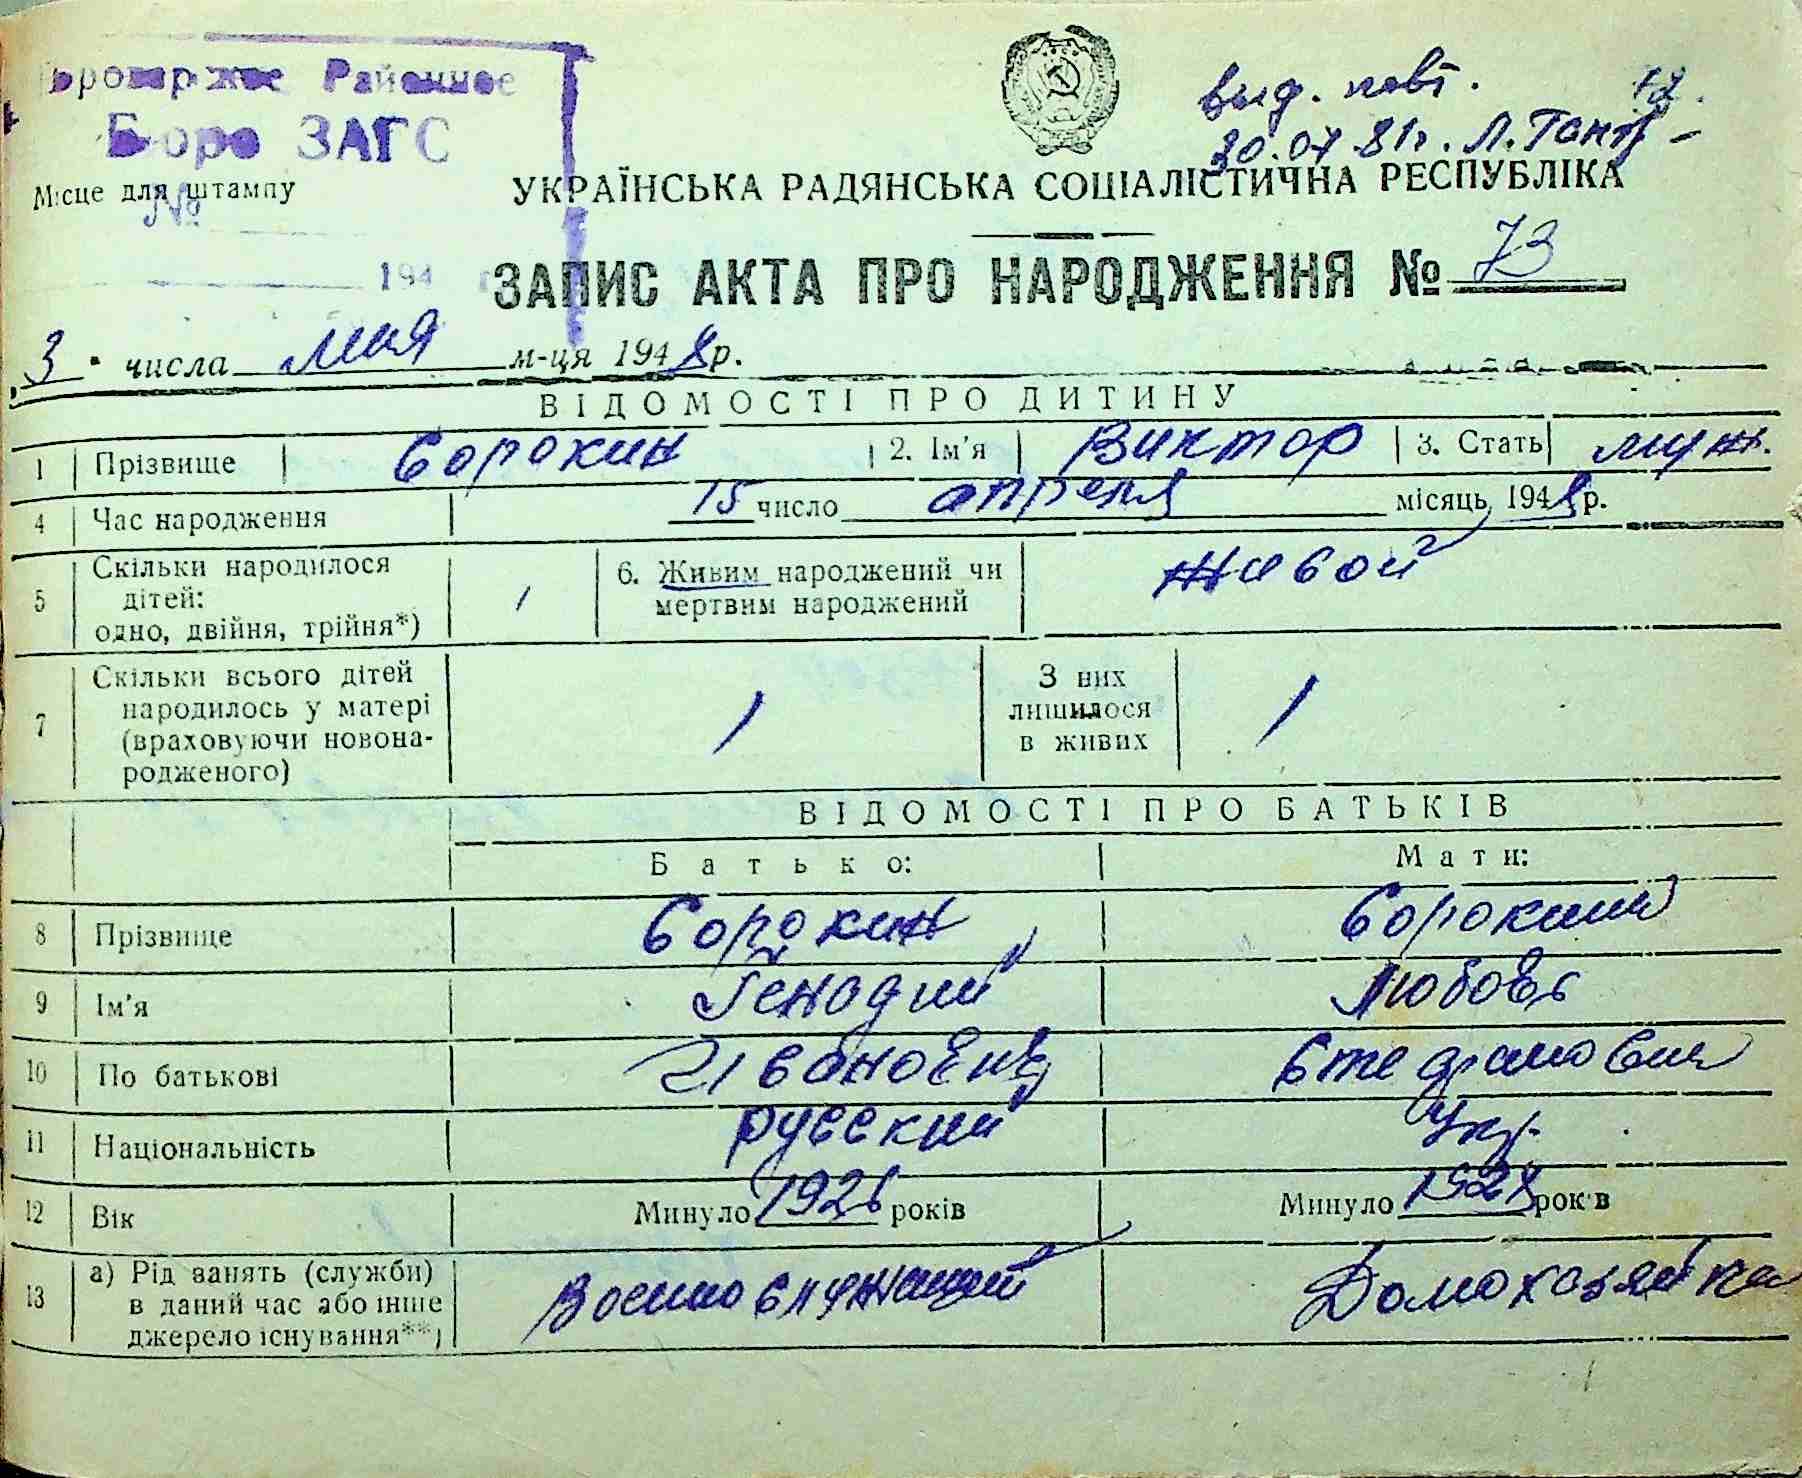 Броварское Районное
Бюро ЗАГС
вид. повт. 12.
30.07.81г.
Місце для штампу
№
194 г
УКРАЇНСЬКА РАДЯНСЬКА СОЦІАЛІСТИЧНА РЕСПУБЛІКА
ЗАПИС АКТА ПРО НАРОДЖЕННЯ № 73
3 числа мая м-ця 1948 р.
ВІДОМОСТІ ПРО ДИТИНУ
1 Прізвище Сорокин 2. Ім'я Виктор 3. Стать муж.
4 Час народження 15 число апреля місяць 1948 р.
5 Скільки народилося дітей: одно, двійня, трійня*) 1 6. Живим народжений чи мертвим народжений живой
7 Скільки всього дітей народилось у матері (враховуючи новонародженого) 1 З них лишилося в живих 1
ВІДОМОСТІ ПРО БАТЬКІВ
Батько: Мати:
8 Прізвище Сорокин Сорокина
9 Ім'я Генодий Любовь
10 По батькові Иванович Стефановна
11 Національність русский Укр.
12 Вік Минуло 1926 років Минуло 1928 років
13 а) Рід занять (служби) в даний час або інше джерело існування**) Военнослужащий Домохозяйка